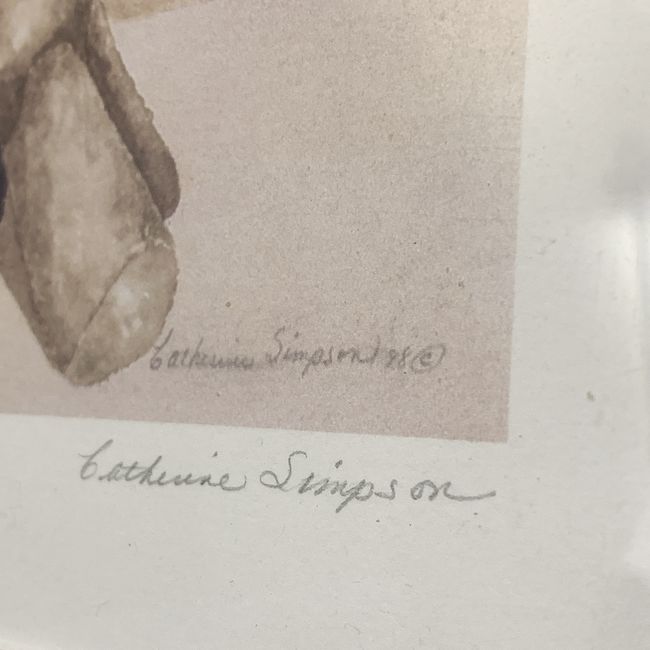 Catherine Simpson '98 ©
Catherine Simpson